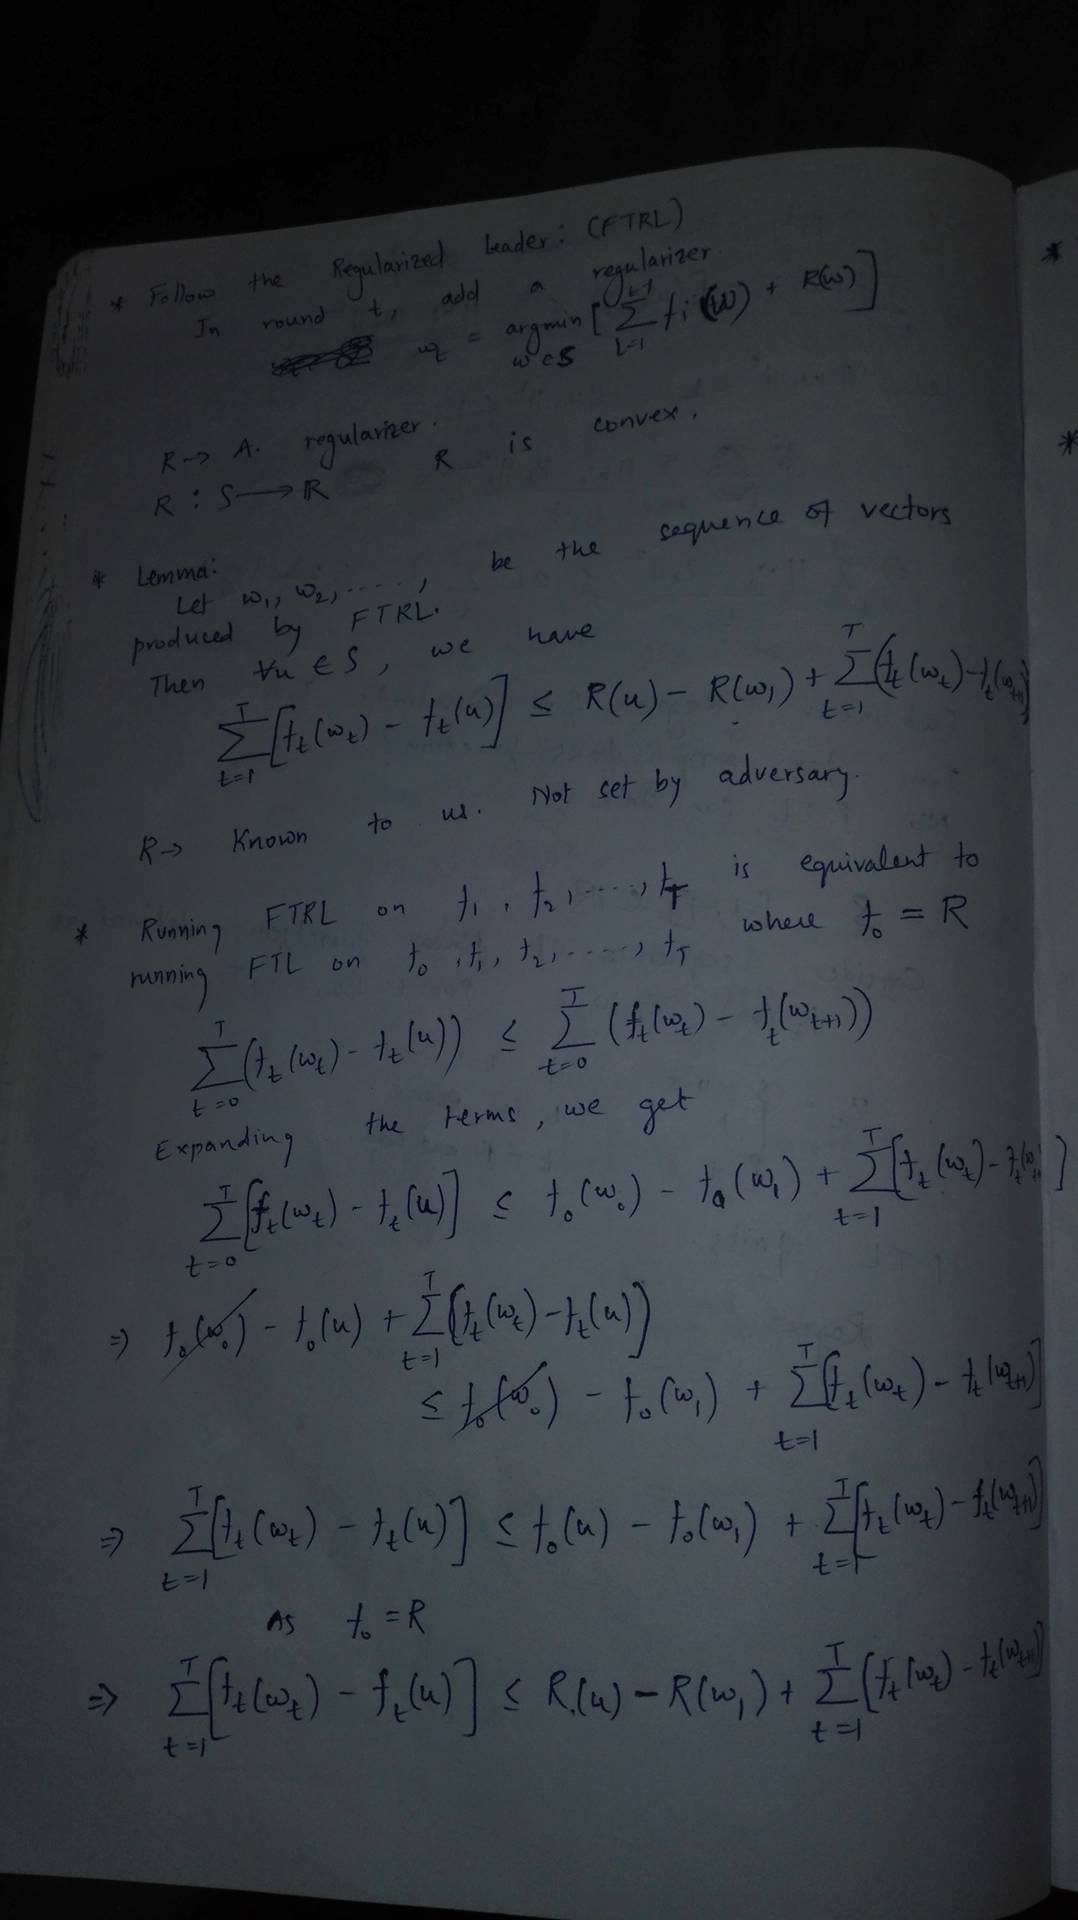 * Follow the Regularized Leader: (FTRL)
In round t, add a regularizer.
w_t = argmin_{w∈S} [∑_{i=1}^{t-1} f_i(w) + R(w)]
R → A. regularizer.
R : S → ℝ R is convex.
* Lemma:
Let w_1, w_2, ....., be the sequence of vectors
produced by FTRL.
Then ∀u ∈ S, we have
∑_{t=1}^{T} [f_t(w_t) - f_t(u)] ≤ R(u) - R(w_1) + ∑_{t=1}^{T} (f_t(w_t) - f_t(w_{t+1}))
R → Known to us. Not set by adversary.
* Running FTRL on f_1, f_2, ....., f_T is equivalent to
running FTL on f_0, f_1, f_2, ....., f_T where f_0 = R
∑_{t=0}^{T} (f_t(w_t) - f_t(u)) ≤ ∑_{t=0}^{T} (f_t(w_t) - f_t(w_{t+1}))
Expanding the terms, we get
∑_{t=0}^{T} [f_t(w_t) - f_t(u)] ≤ f_0(w_0) - f_0(w_1) + ∑_{t=1}^{T} [f_t(w_t) - f_t(w_{t+1})]
⇒ f_0(w_0) - f_0(u) + ∑_{t=1}^{T} [f_t(w_t) - f_t(u)]
≤ f_0(w_0) - f_0(w_1) + ∑_{t=1}^{T} [f_t(w_t) - f_t(w_{t+1})]
⇒ ∑_{t=1}^{T} [f_t(w_t) - f_t(u)] ≤ f_0(u) - f_0(w_1) + ∑_{t=1}^{T} [f_t(w_t) - f_t(w_{t+1})]
As f_0 = R
⇒ ∑_{t=1}^{T} [f_t(w_t) - f_t(u)] ≤ R(u) - R(w_1) + ∑_{t=1}^{T} [f_t(w_t) - f_t(w_{t+1})]
*
*